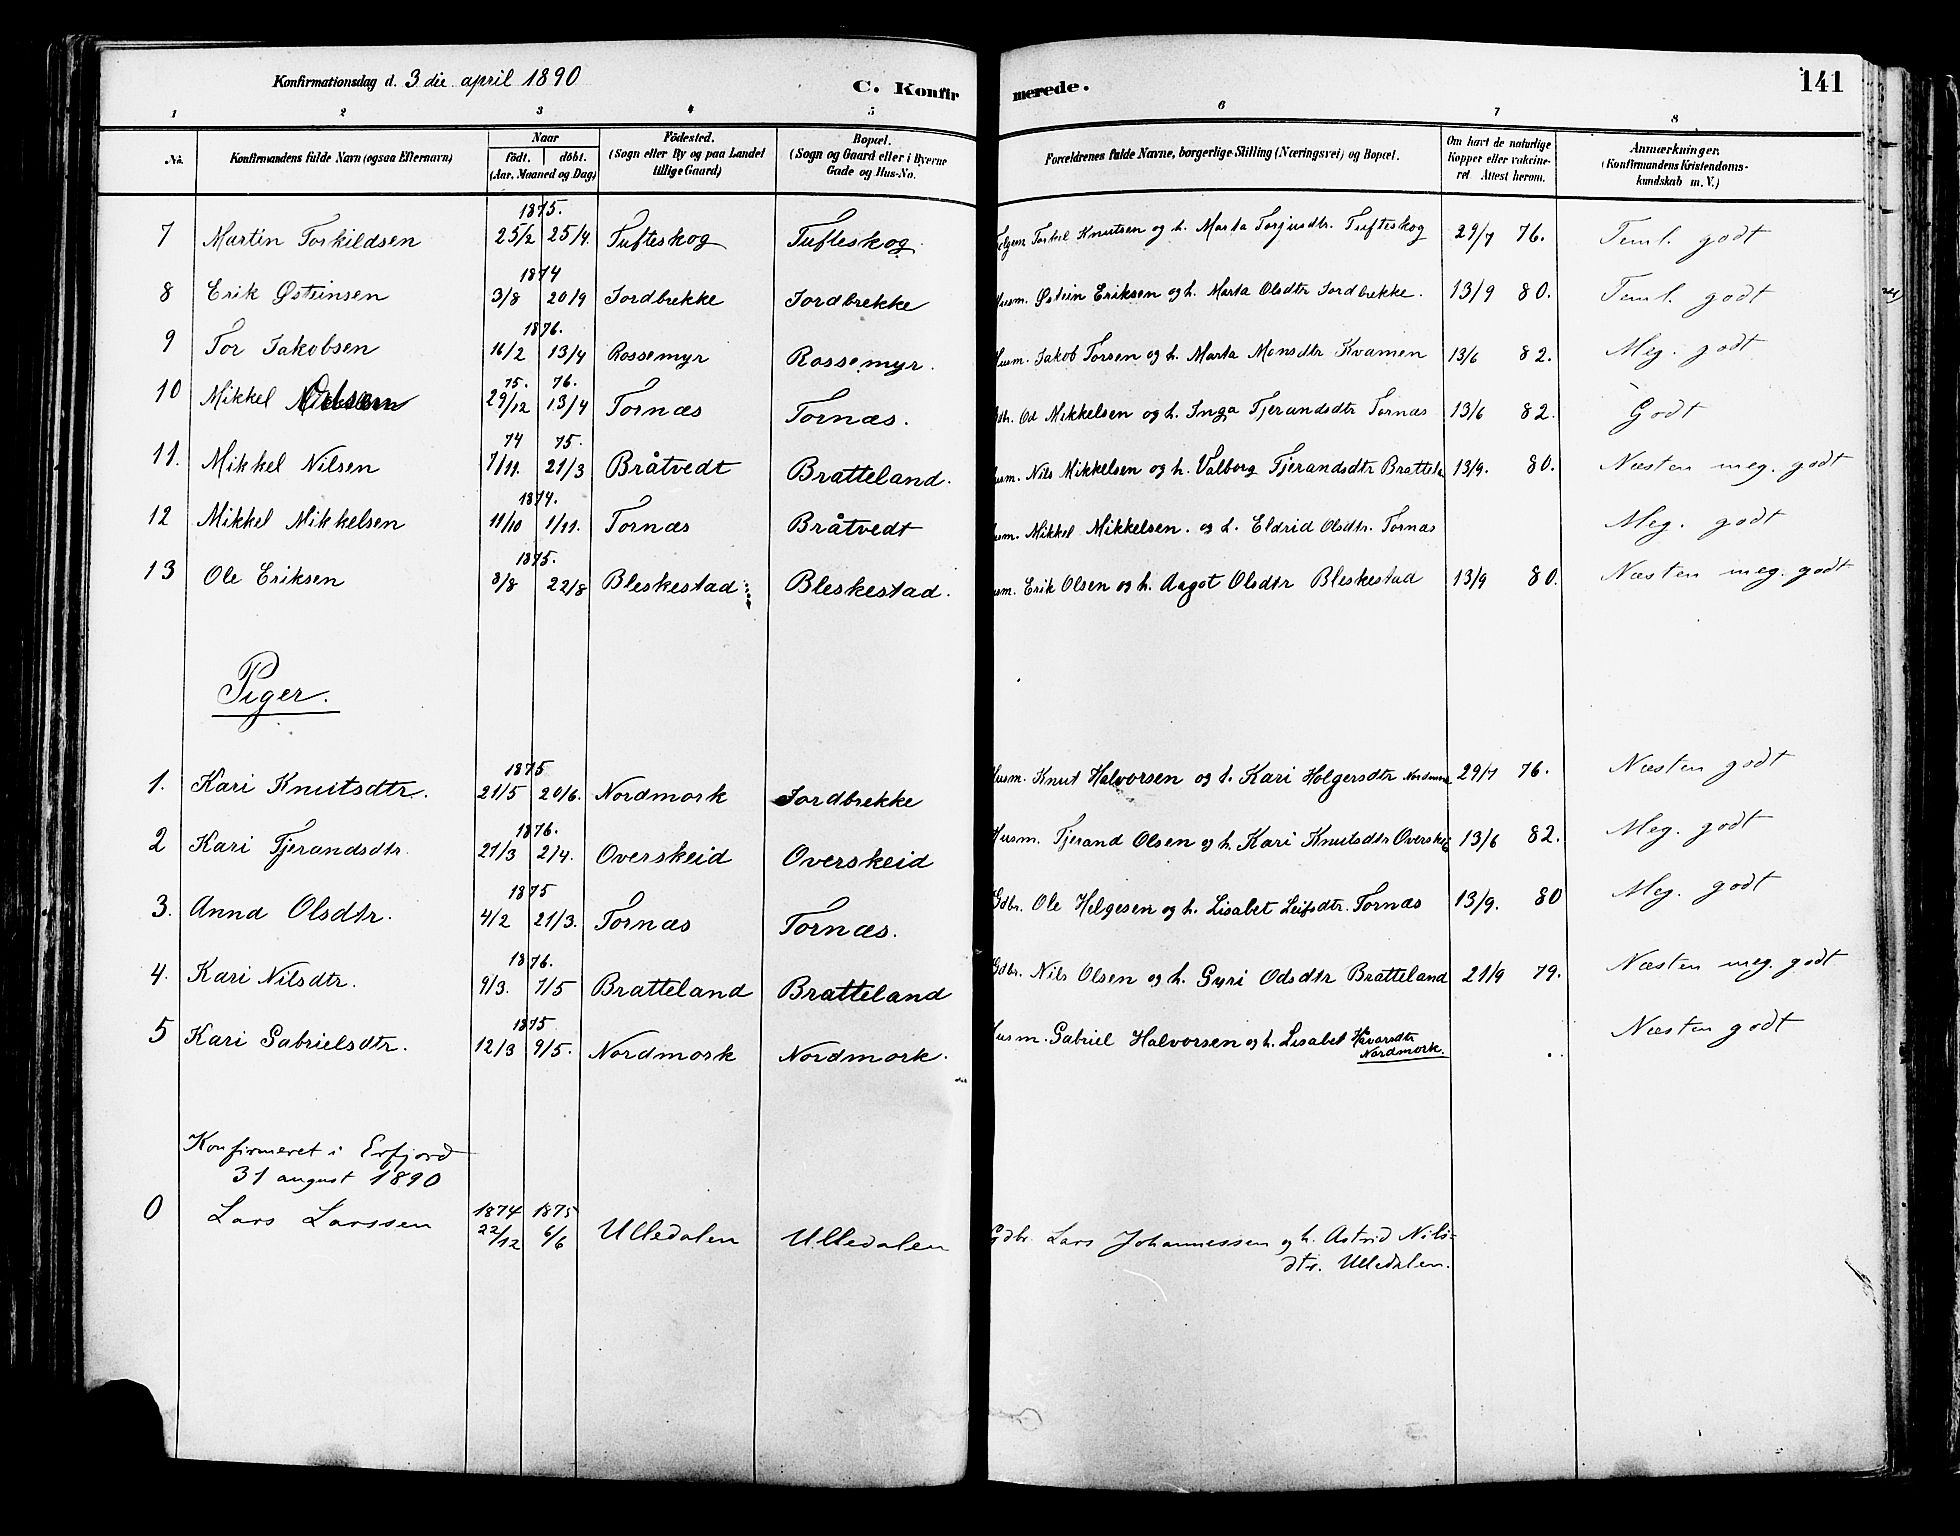 Konfirmationsdag d. 3die april 1890 C. Konfirmerede. 141
1 2 3 4 5 6 7 8
No. Konfirmandens fulde Navn (ogsaa Efternavn) Naar födt. döbt. (Aar, Maaned og Dag) Födested. (Sogn eller By og paa Landet tillige Gaard) Bopæl. (Sogn og Gaard eller i Byerne Gade og Hus-No. Forældrenes fulde Navne, borgerlige Stilling (Næringsvei) og Bopæl. Om havt de naturlige Kopper eller vakcineret Attest herom. Anmærkninger, (Konfirmandens Kristendomskundskab m. V.)
1875.
7 Martin Torkildsen 25/2 25/4. Tufteskog Tufteskog. Torkel Knutsen og h. Marta Torjusdtr. Tufteskog 29/7 76. Teml. godt
1874
8 Erik Østeinsen 3/8 20/9 Jordbrekke Jordbrekke Husm. Østein Eriksen og h. Marta Olsdtr Jordbrekke. 13/9 80. Teml. godt
1876.
9 Tor Jakobsen 16/2 13/4 Rossemyr Rossemyr. Husm. Jakob Torsen og h. Marta Monsdtr Kvamen 13/6 82. Meg. godt
75. 76.
10 Mikkel Odsen 29/12 13/4 Tornæs Tornæs. Gdbr. Od Mikkelsen og h. Inga Tjerandsdtr Tornæs 13/6 82. Godt
74 75.
11. Mikkel Nilsen 7/11. 21/3 Bråtvedt Bratteland. Husm. Nils Mikkelsen og h. Valborg Tjerandsdtr Brattela 13/9. 80. Næsten meg. godt
1874.
12 Mikkel Mikkelsen 11/10 1/11. Tornæs Bråtvedt Husm. Mikkel Mikkelsen. og h. Eldrid Olsdtr. Tornæs Meg. godt
1875.
13 Ole Eriksen 8/8 22/8 Bleskestad Bleskestad. Husm. Erik Olsen og h. Aagot Olsdtr Bleskestad 13/9 80. Næsten meg. godt
Piger.
1875
1. Kari Knutsdtr. 21/5 20/6. Nordmork Jordbrekke Husm. Knut Halvorsen og h. Kari Holgersdtr Nordmork 29/7 76. Næsten godt
1876.
2 Kari Tjerandsdtr. 21/3 2/4. Overskeid Overskeid Husm. Tjerand Olsen og h. Kari Knutsdtr Overskei 13/6 82. Meg. godt
1875
3. Anna Olsdtr. 4/2 21/3. Tornæs Tornæs. Gdbr. Ole Helgesen og h. Lisabet Leifsdtr. Tornæs 13/9. 80 Meg. godt
1876.
4. Kari Nilsdtr. 9/3. 7/5 Bratteland Bratteland Gdbr. Nils Olsen og h. Gyri Odsdtr Bratteland 21/9 79. Næsten meg. godt
1875
5 Kari Gabrielsdtr. 12/3 9/5. Nordmork Nordmork. Husm. Gabriel Halvorsen og h. Lisabet Havarsdtr Næsten godt
Nordmork.
Konfirmeret i Erfjord
31 august 1890
1874 1875
0 Lars Larssen 22/12 6/6 Ulledalen Ulledalen Gdbr. Lars Johannessen og h. Astrid Nils-
dtr. Ulledalen.